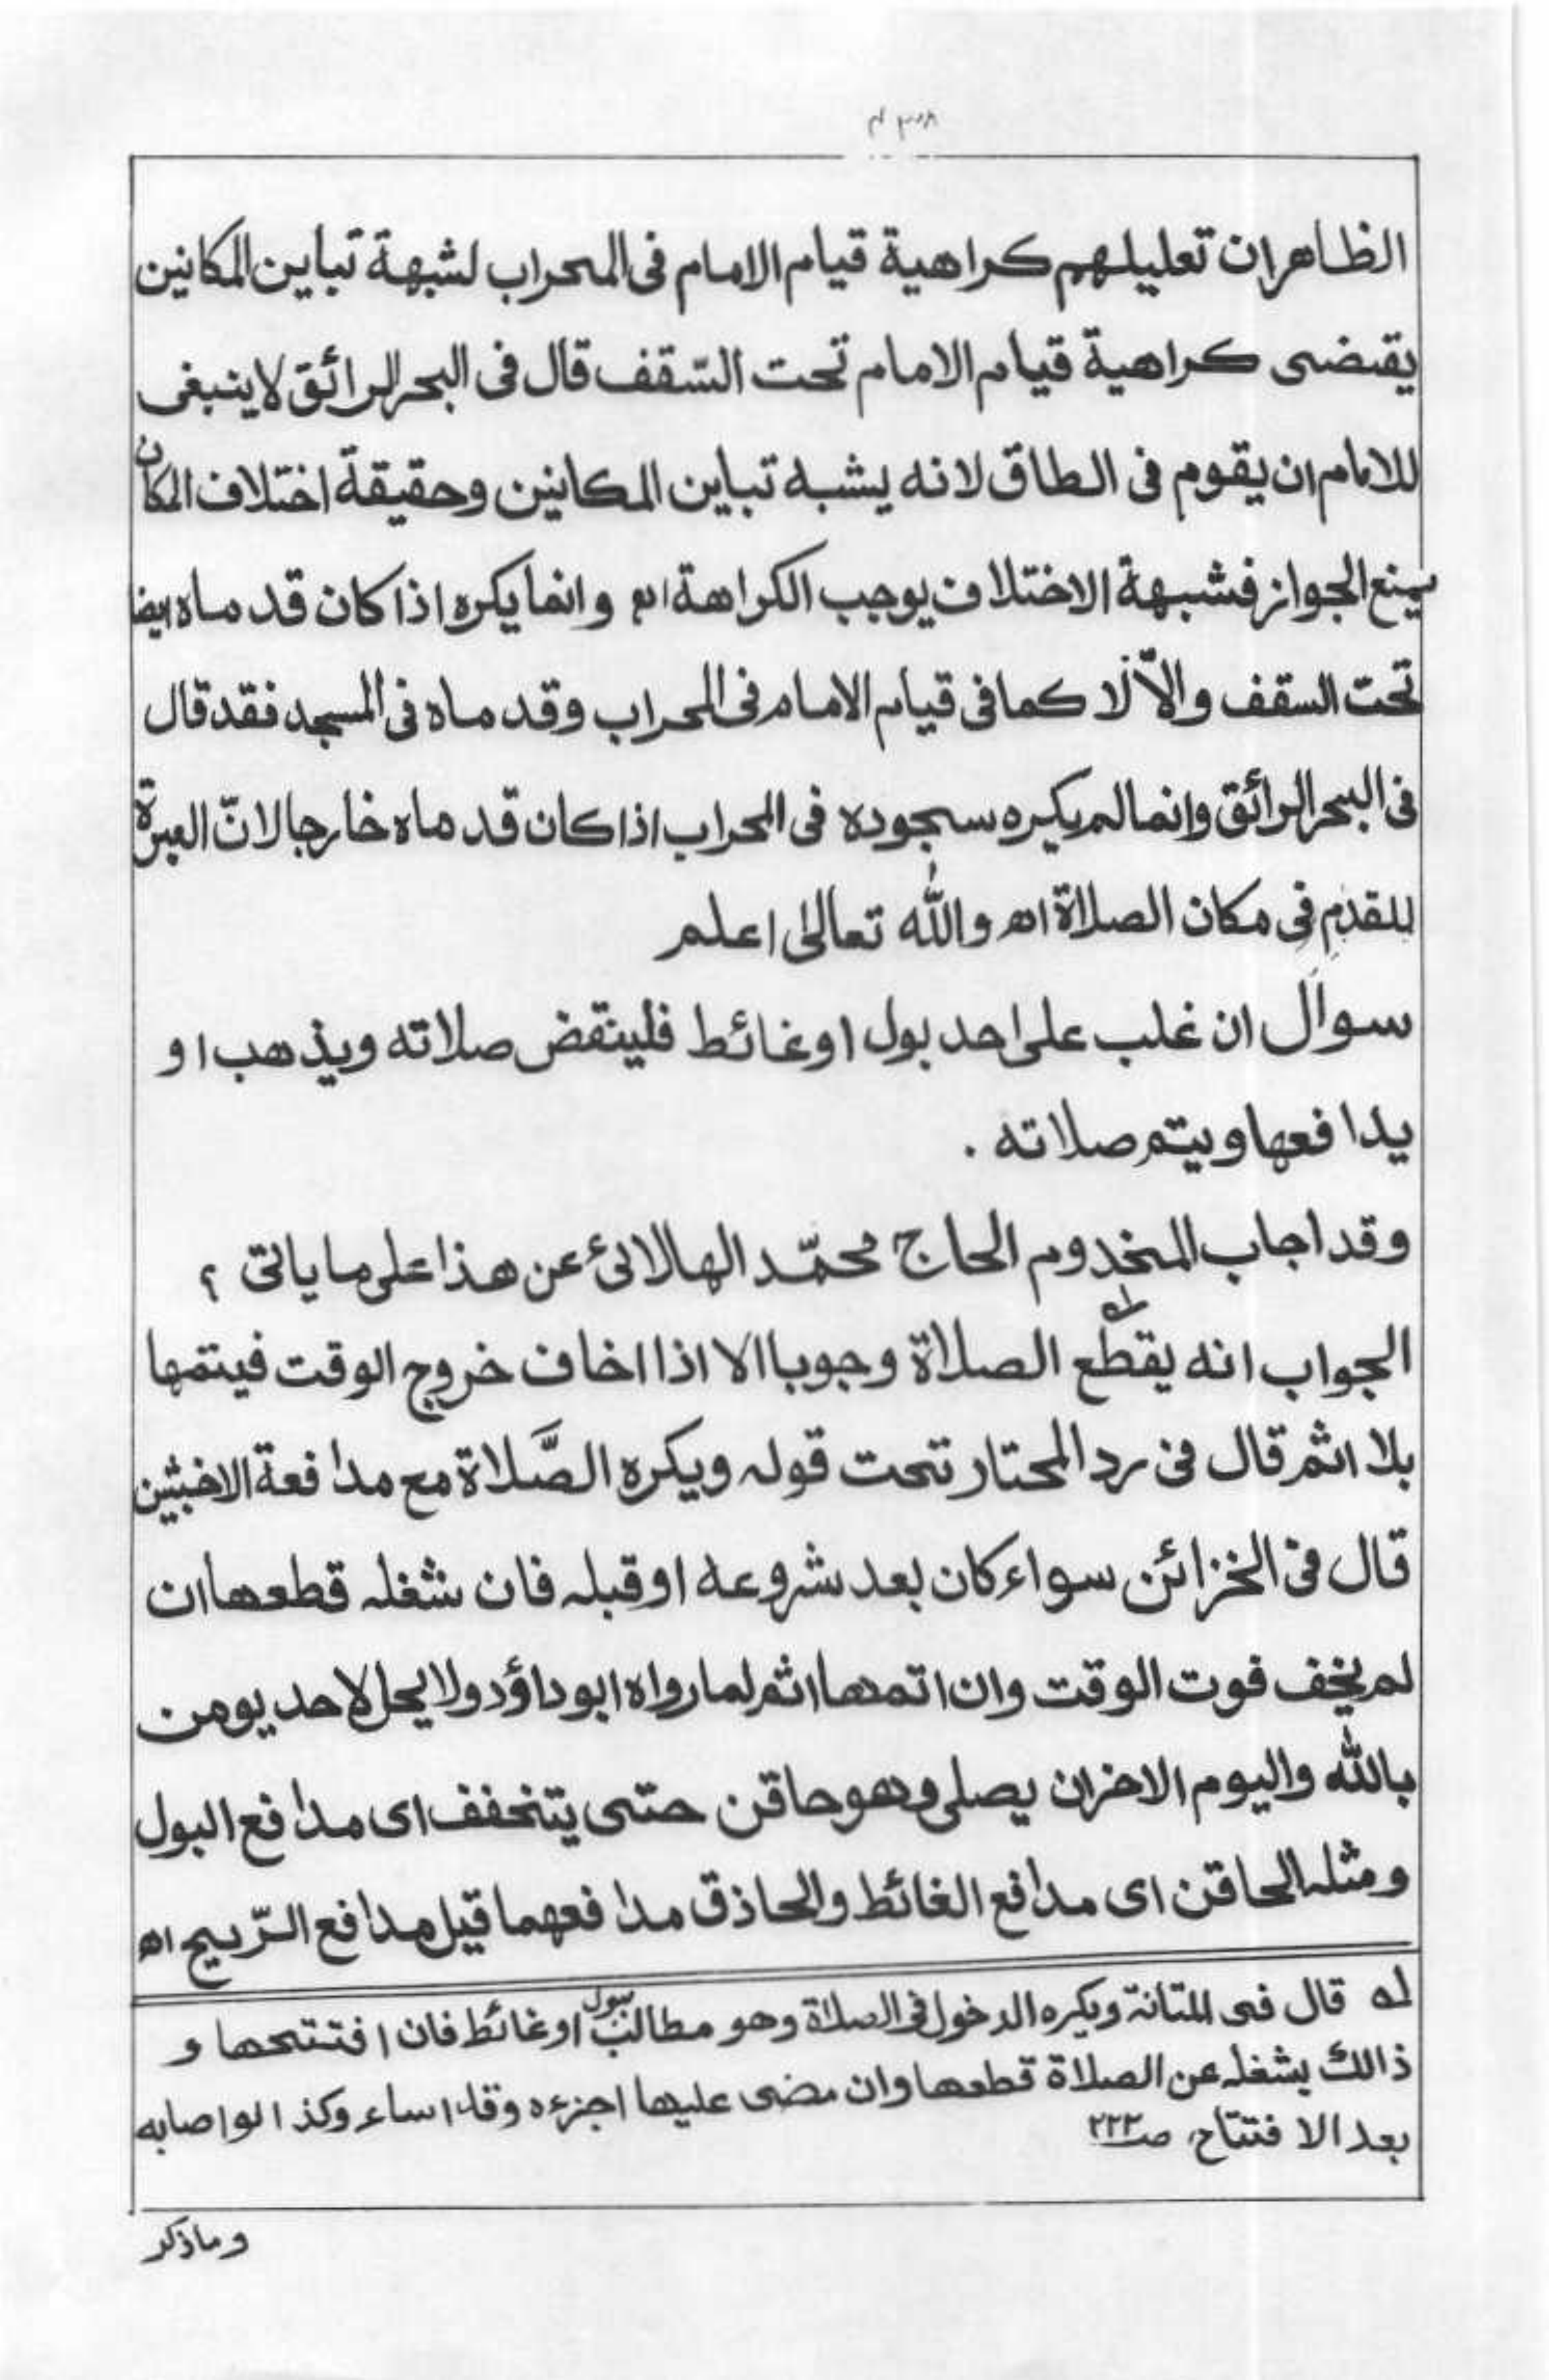 الظاهر ان تعليلهم كراهية قيام الامام فى المحراب لشبهة تباين المكانين
يقتضى كراهية قيام الامام تحت السّقف قال فى البحر الرائق لاينبغى
للامام ان يقوم فى الطاق لانه يشبه تباين المكانين وحقيقة اختلاف المكان
يمنع الجواز فشبهة الاختلاف يوجب الكراهة اه وانما يكره اذا كان قدماه ايضا
تحت السقف والاّ فلا كما فى قيام الامام فى المحراب وقدماه فى المسجد فقد قال
فى البحر الرائق وانما لم يكره سجوده فى المحراب اذا كان قدماه خارجا لانّ العبرة
للقدم فى مكان الصلاة اه والله تعالىٰ اعلم
سوال ان غلب على احد بول او غائط فلينقض صلاته ويذهب او
يدافعها ويتم صلاته .
وقد اجاب المخدوم الحاج محمّد الهالائى عن هذا على ما ياتى ؟
الجواب انه يقطع له الصلاة وجوبا الا اذا اخاف خروج الوقت فيتمها
بلا اثم قال فى رد المحتار تحت قوله ويكره الصَّلاة مع مدافعة الاخبثين
قال فى الخزائن سواء كان بعد شروعه او قبله فان شغله قطعها ان
لم يخف فوت الوقت وان اتمها اثم لما رواه ابو داؤد ولا يحل لاحد يومن
بالله واليوم الاخر ان يصلى وهو حاقن حتى يتخفف اى مدافع البول
ومثله الحاقن اى مدافع الغائط والحاذق مدافعهما قيل مدافع الرّيح اه
له قال فى المتانة ويكره الدخول فى الصلاة وهو مطالب ببول او غائط فان افتتحها و
ذالك يشغله عن الصلاة قطعها وان مضى عليها اجزءه وقد اساء وكذا لو اصابه
بعد الافتتاح، صـ٢٢٢
وماذكر